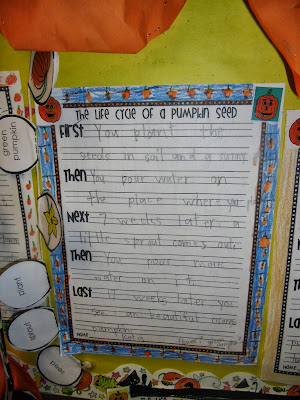 The Life Cycle of a Pumpkin Seed
First You plant the
seeds in soil and a sunny
Then You pour water on
the place where you
Next 7 weeks later a
little sprout comes out.
Then You pour more
water on it
Last 7 weeks later you
see an beautiful
pumpkin
NAME
green pumpkin
plant
seed